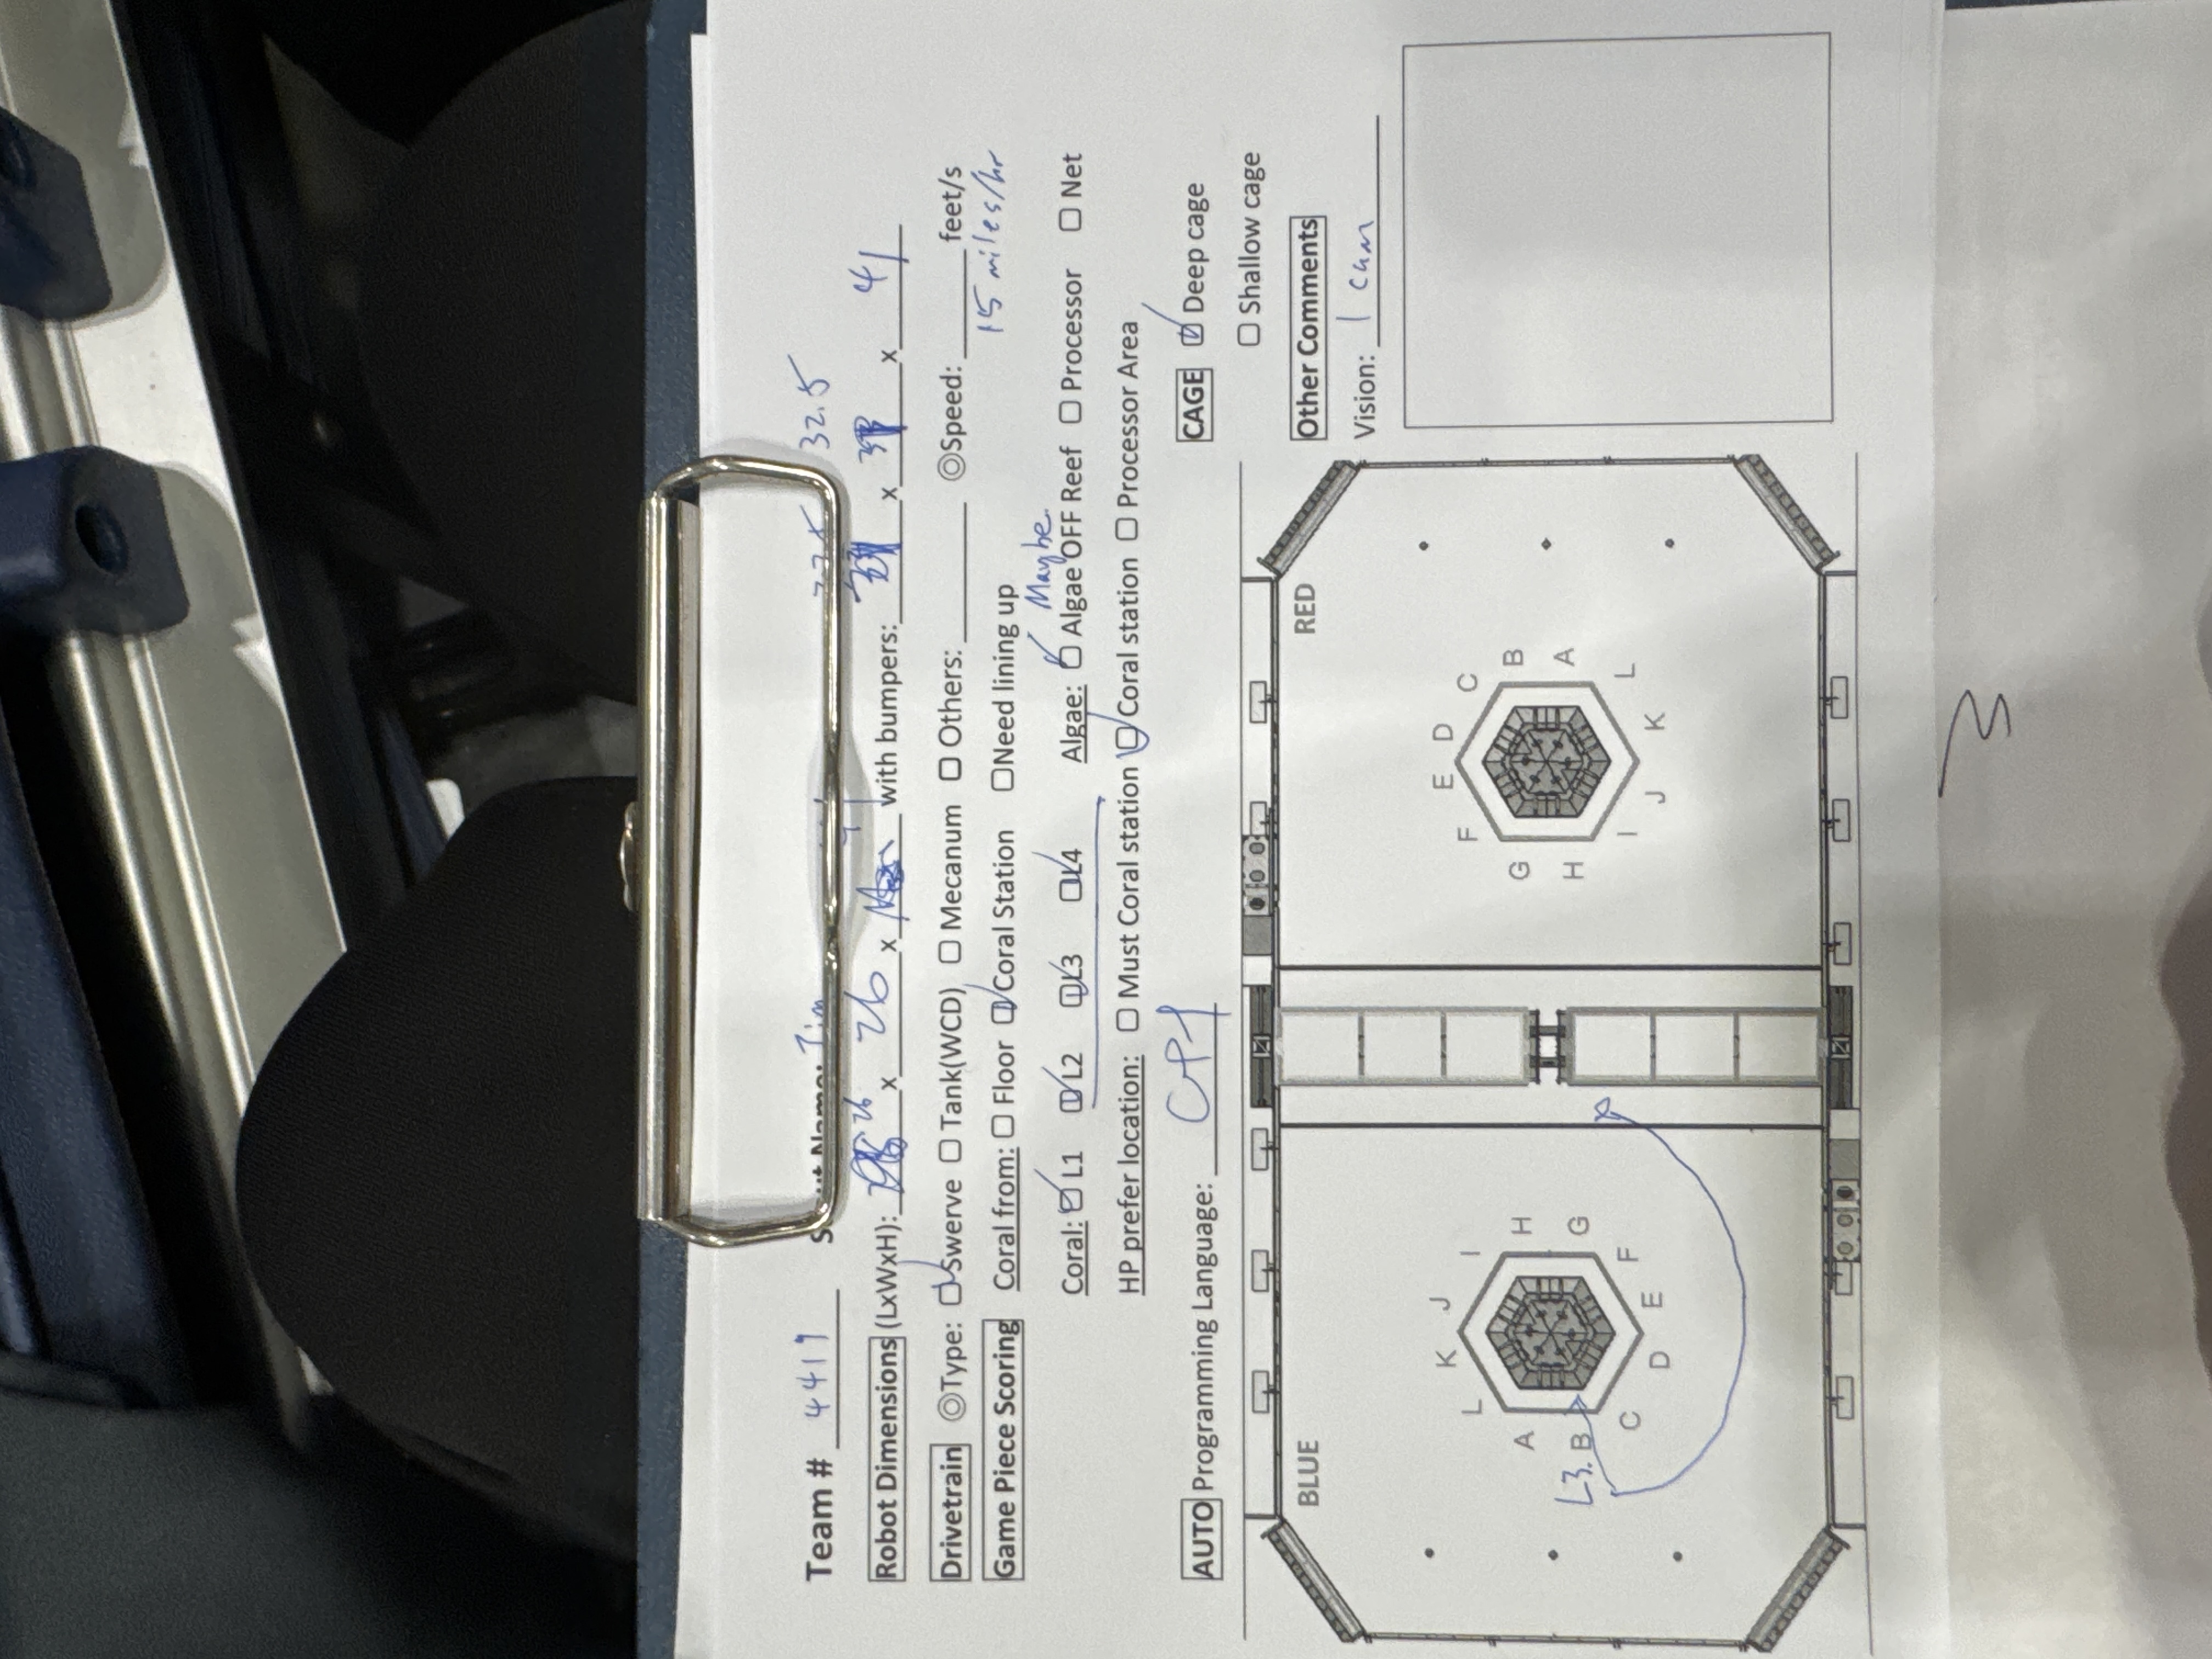 Team # 4419 Name: Tim 32.5
Robot Dimensions (LxWxH): 26 x 26 x 41 with bumpers: x x 41
Drivetrain ◎Type: ☐ Swerve ☐ Tank(WCD) ☐ Mecanum ☐ Others: ◎Speed: feet/s
15 miles/hr
Game Piece Scoring Coral from: ☐ Floor ☐ Coral Station ☐Need lining up
Maybe
Coral: ☐ L1 ☐ L2 ☐ L3 ☐ L4 Algae: ☐ Algae OFF Reef ☐ Processor ☐ Net
HP prefer location: ☐ Must Coral station ☐ Coral station ☐ Processor Area
AUTO Programming Language:
CAGE ☐ Deep cage
☐ Shallow cage
Other Comments
Vision: 1 cam
BLUE RED
K J
L I
A H
L3. B G
C F
D E
E D
F C
G B
H A
I L
J K